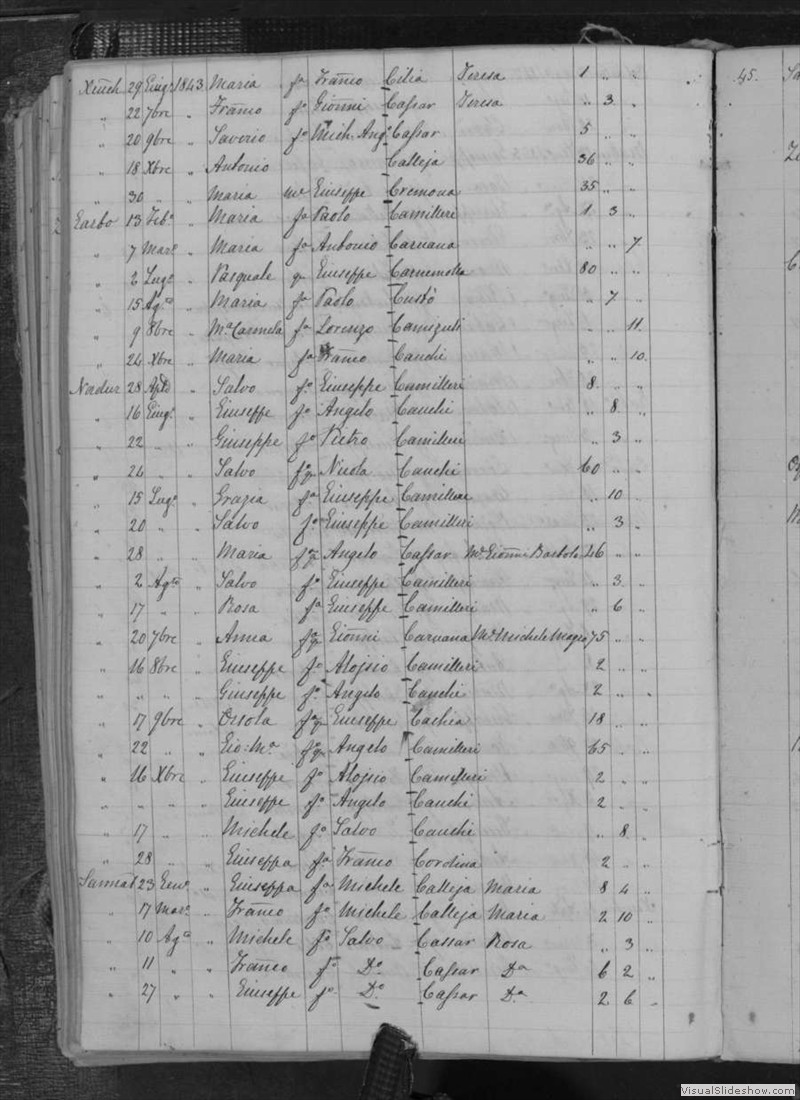 Xeuch 29 Giug. 1843 Maria fa Franco Cilia Teresa 1 " "
" 22 7bre " Franco fo Gionni Cassar Teresa " 3 "
" 20 9bre " Saverio fo Mich. Ango Cassar 5 " "
" 18 Xbre " Antonio Calleja 36 " "
" 30 " " Maria Giuseppe Cremona 35 " "
Garbo 13 Feb.o " Maria fa Paolo Camilleri 1 3 "
" 7 Mar.o " Maria fa Antonio Caruana " " 7
" 2 Lug.o " Pasquale qm Giuseppe Curmi 80 " "
" 15 Ag.to " Maria fa Paolo Custò " 7 "
" 9 8bre " Ma Carmela fa Lorenzo " " 11
" 24 Xbre " Maria fa Franco Cauchi " " 10
Nadur 28 Aple " Salvo fo Giuseppe Camilleri 8 " "
" 16 Giug.o " Giuseppe fo Angelo Cauchi " 8 "
" 22 " Giuseppe fo Pietro Camilleri " 3 "
" 24 " Salvo Nicola Cauchi 60 " "
" 15 Lug.o " Grazia fa Giuseppe Camilleri " 10 "
" 20 " " Salvo fo Giuseppe Camilleri " 3 "
" 28 " " Maria Angelo Cassar Me Gionni Bartolo 46 " "
" 2 Ag.to " Salvo fo Giuseppe Camilleri " 3 "
" 17 " " Rosa fa Giuseppe Camilleri " 6 "
" 20 7bre " Anna Gionni Caruana Me Michele 75 " "
" 16 8bre " Giuseppe fo Aloisio Camilleri 2 " "
" " " " Giuseppe fo Angelo Cauchi 2 " "
" 17 9bre " Orsola Giuseppe Cachia 18 " "
" 22 " " Gio: Ma Angelo Camilleri 65 " "
" 16 Xbre " Giuseppe fo Aloisio Camilleri 2 " "
" " " " Giuseppe fo Angelo Cauchi 2 " "
" 17 " " Michele fo Salvo Cauchi " 8 "
" 28 " " Giuseppa fa Franco Cordina 2 " "
Sannat 23 Gen.o " Giuseppa fa Michele Calleja Maria 8 4 "
" 17 Mar.o " Franco fo Michele Calleja Maria 2 10 "
" 10 Ag.to " Michele fo Salvo Cassar Rosa " 3 "
" 11 " " Franco fo Do Cassar Da 6 2 "
" 27 " " Giuseppe fo Do Cassar Da 2 6 "
45.
VisualSlideshow.com